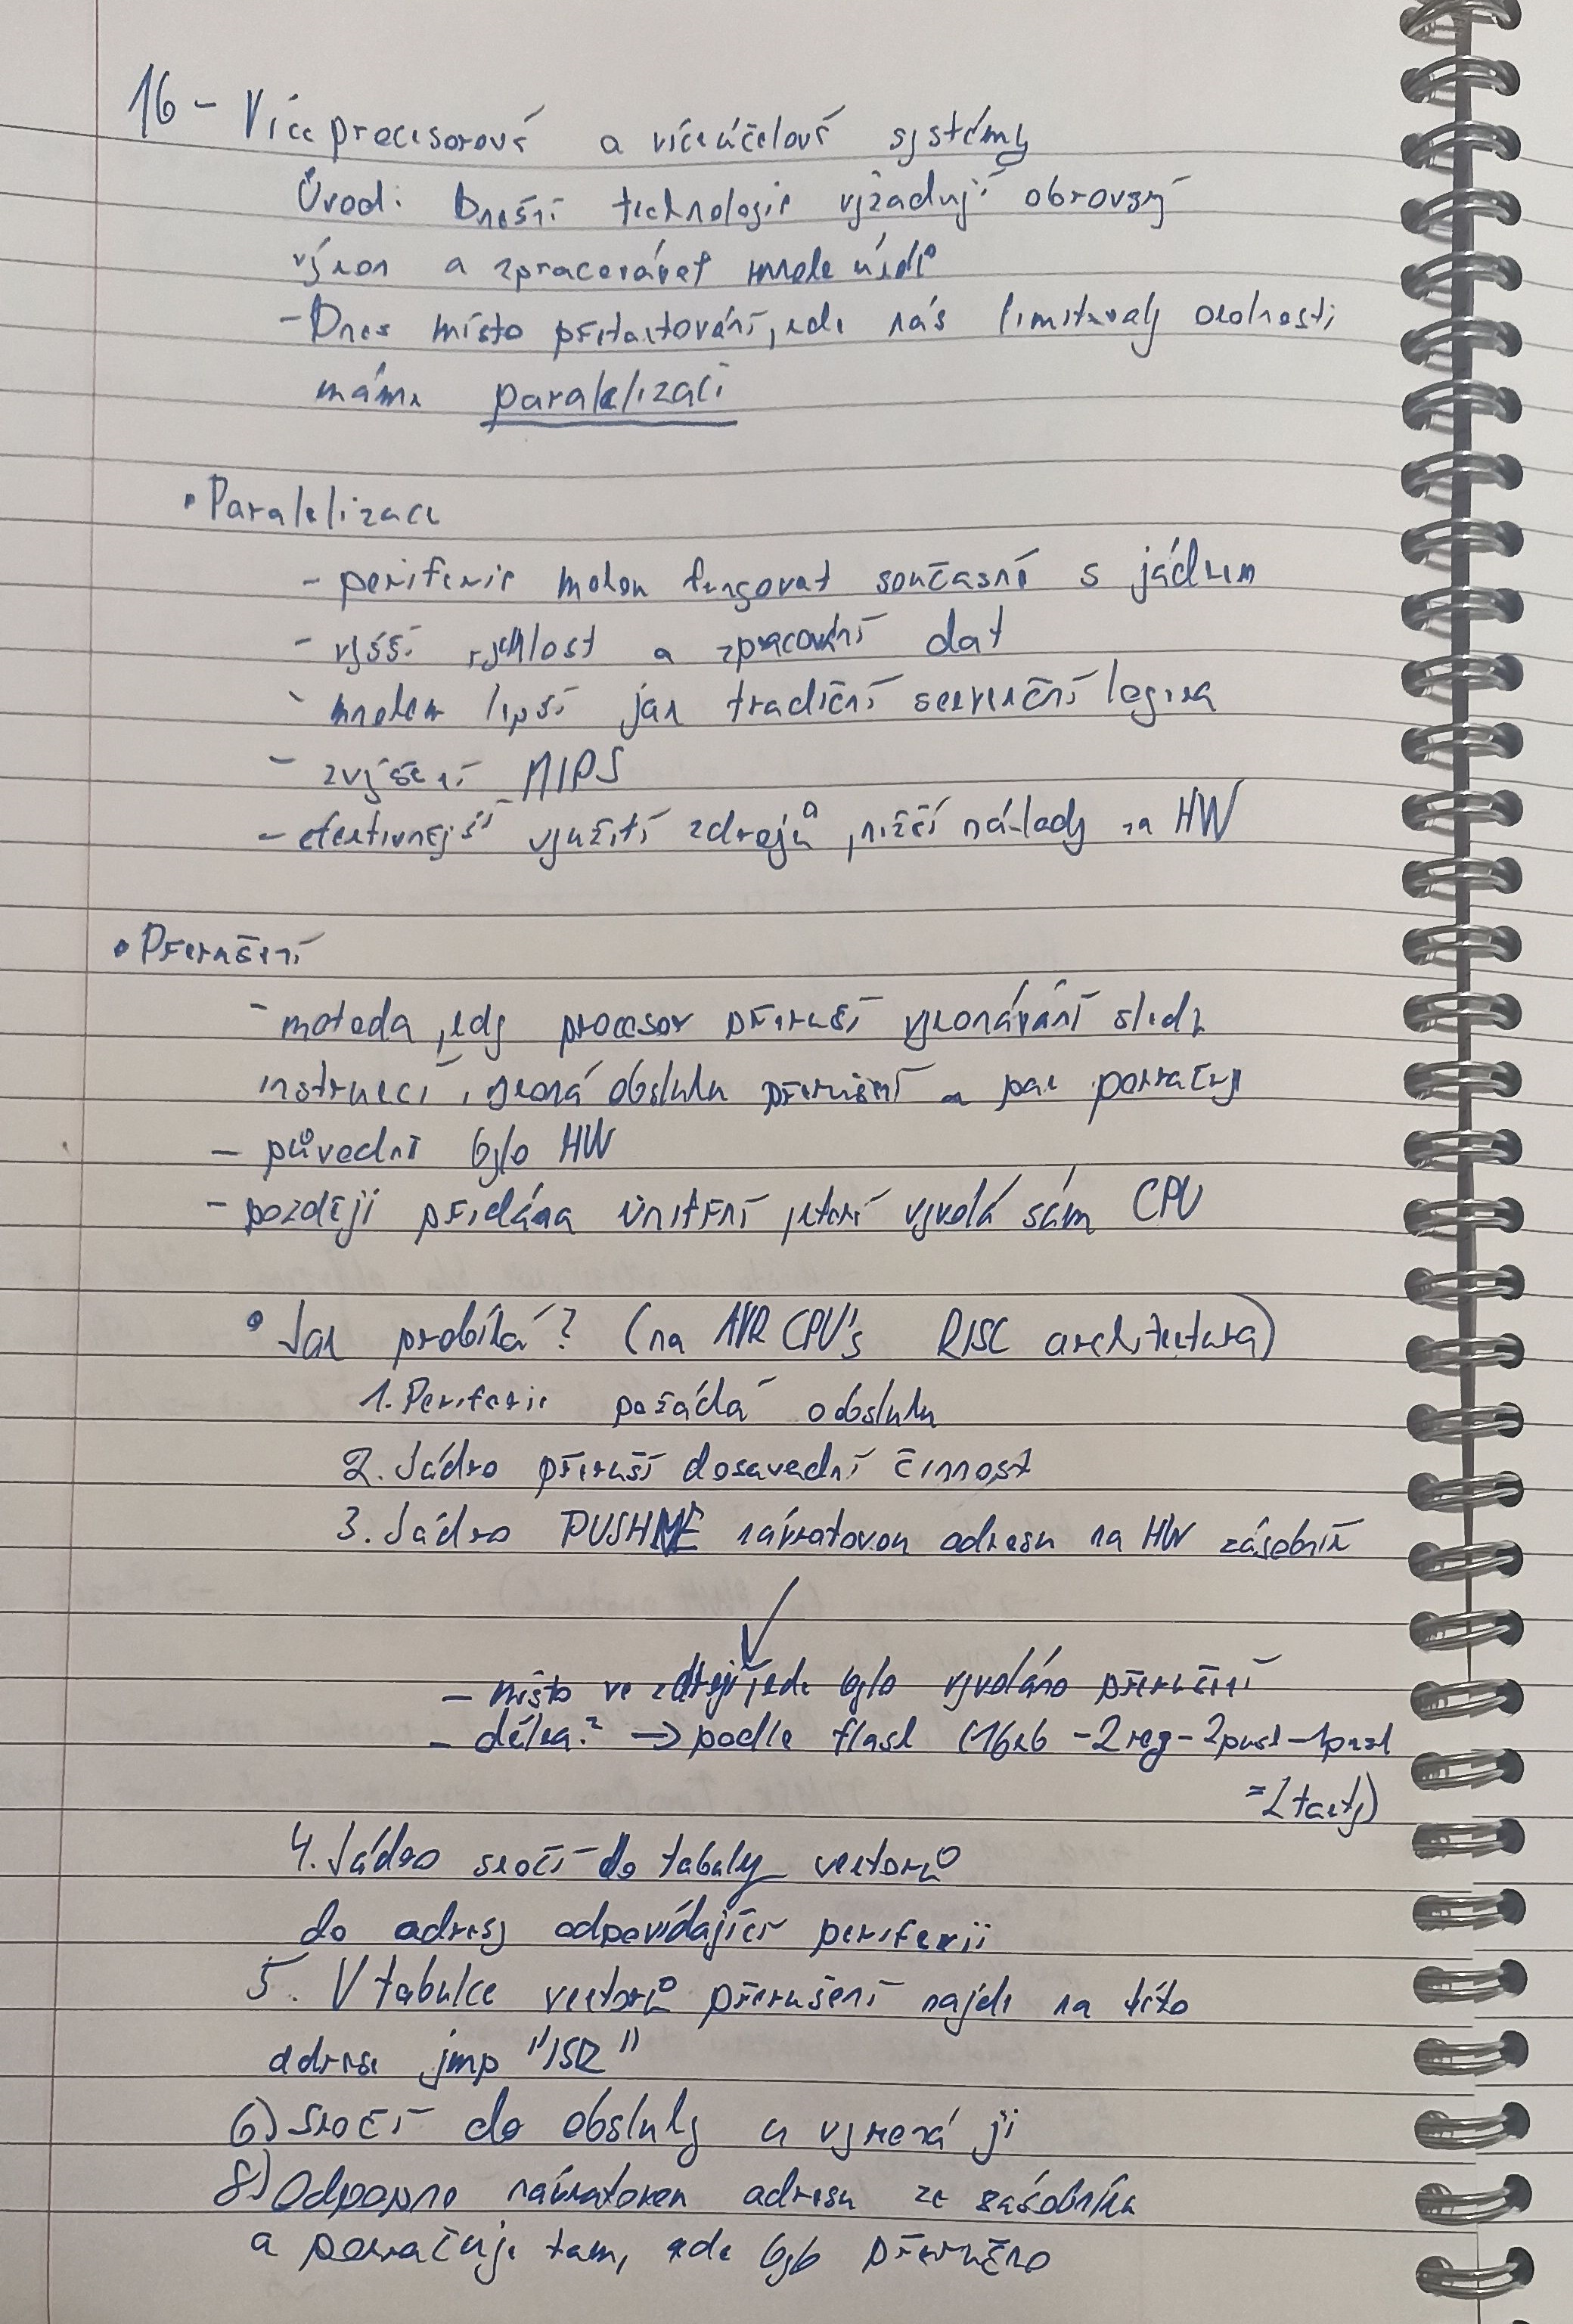 16 - Víceprocesorové a víceúčelové systémy
Úvod: Dnešní technologie vyžadují obrovský
výkon a zpracovávat mnoho údajů
- Dnes místo přetaktování, kde nás limitovaly
máme paralelizaci
• Paralelizace
- periferie mohou fungovat současně s jádrem
- vyšší rychlost a zpracování dat
- mnohem lepší jak tradiční sekvenční logika
- zvýšení MIPS
- efektivnější využití zdrojů, nižší náklady na HW
• Přerušení
- metoda, kdy procesor přeruší vykonávání sledu
instrukcí, vykoná obsluhu přerušení a pak pokračuje
- původně bylo HW
- později přidána vnitřní, které vyvolá sám CPU
• Jak probíhá? (na AVR CPU's RISC architektura)
1. Periferie požádá o obsluhu
2. Jádro přeruší dosavadní činnost
3. Jádro PUSHNE návratovou adresu na HW zásobník
- místo ve zdroji, kde bylo vyvoláno přerušení
- délka? → podle flash (16kb - 2 reg - 2 push - 1 push
= 2 takty)
4. Jádro skočí do tabulky vektorů
do adresy odpovídající periferii
5. V tabulce vektorů přerušení najde na této
adrese jmp "ISR"
6) Skočí do obsluhy a vykoná ji
8) Odpopne návratovou adresu ze zásobníku
a pokračuje tam, kde bylo přerušeno